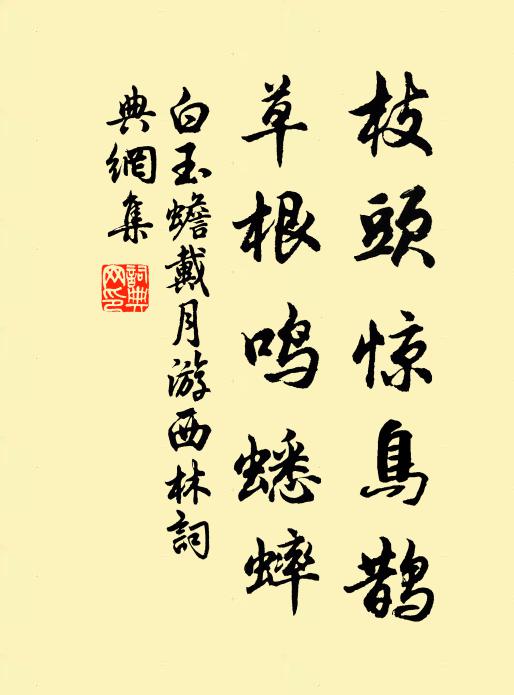 枝頭惊鳥鵲
草根鳴蟋蟀
白玉蟾戴月游西林詞
典網集
詞典
网印